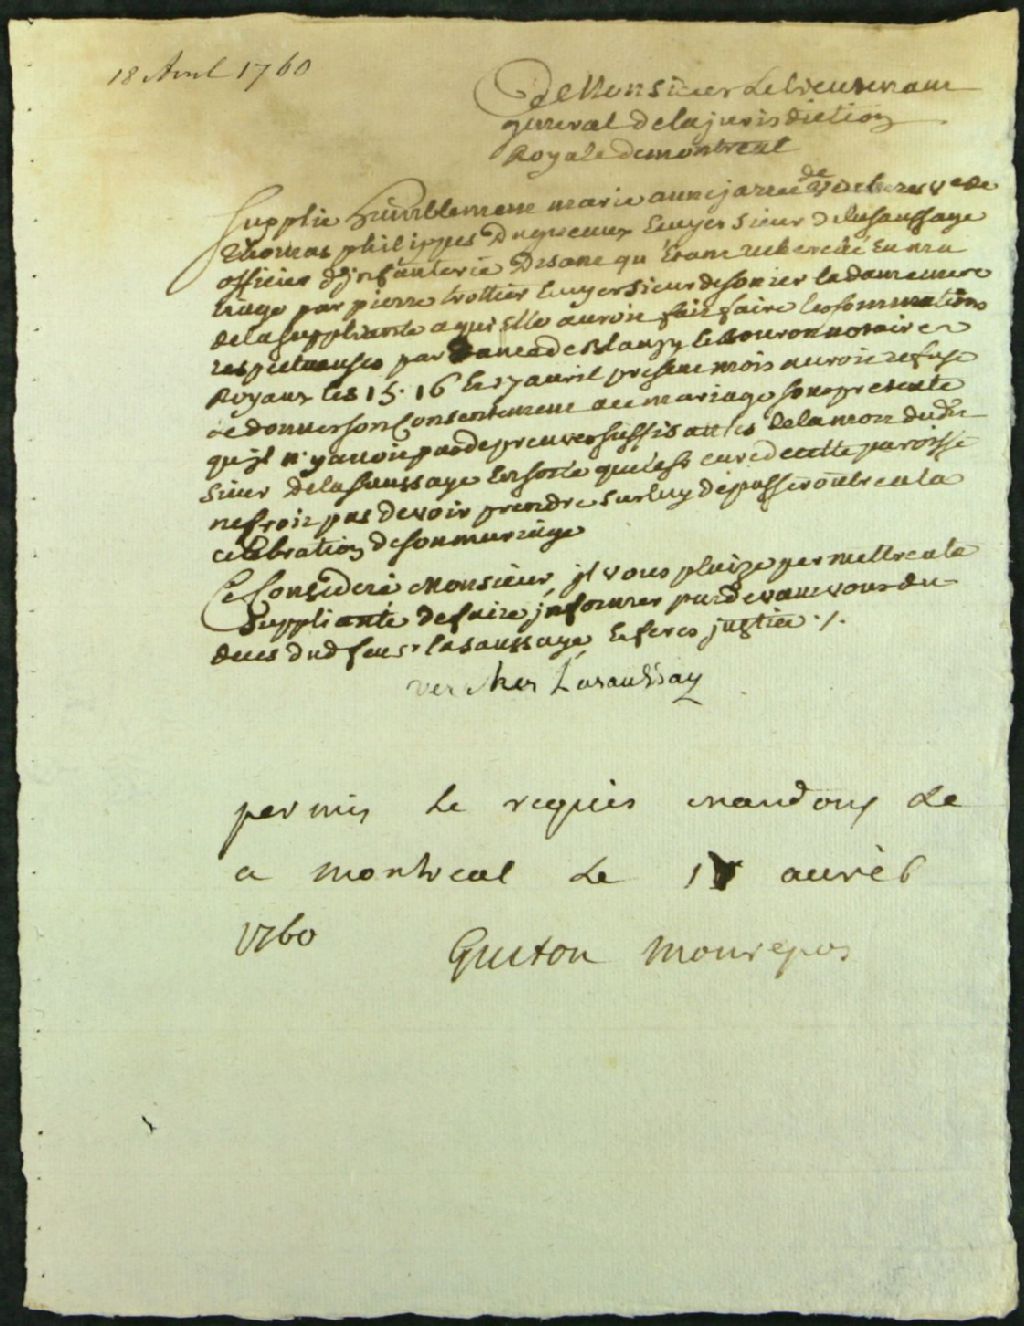 18 Avril 1760
De Monsieur Le Lieutenant
general de la jurisdiction
Royale de montreal
Supplie humblement marie anne jared de Vercheres ve de
Thomas philippes Dagneaux Ecuyer Sieur de la saussaye
officier d'jnfanterie Disant qu'Etant recherchée En ma
riage par pierre trottier Ecuyer sieur desonier la dame mere
de la suppliante a qui Elle auroit fait faire les sommations
respectueuses par danré de Blanzy le notaire
Royaux les 15. 16 et 17 avril present mois auroit refusé
de donner son Consentement au mariage son pretexte
qu'jl n'y avoit pas de preuves suffisattes de la mort dudit
sieur de la saussaye En sorte que le sr curé de cette paroisse
ne croit pas devoir prendre sur luy de passer outre a la
celebration de son mariage
Ce Consideré Monsieur, jl vous plaize permettre a la
suppliante de faire jnformer pardevant vous du
deces dud feu sr lasaussaye Et feres justice ./.
vercheres Lasaussay
permis le requis mandons &e
a montreal le 18 avril
1760
Guiton Monrepos